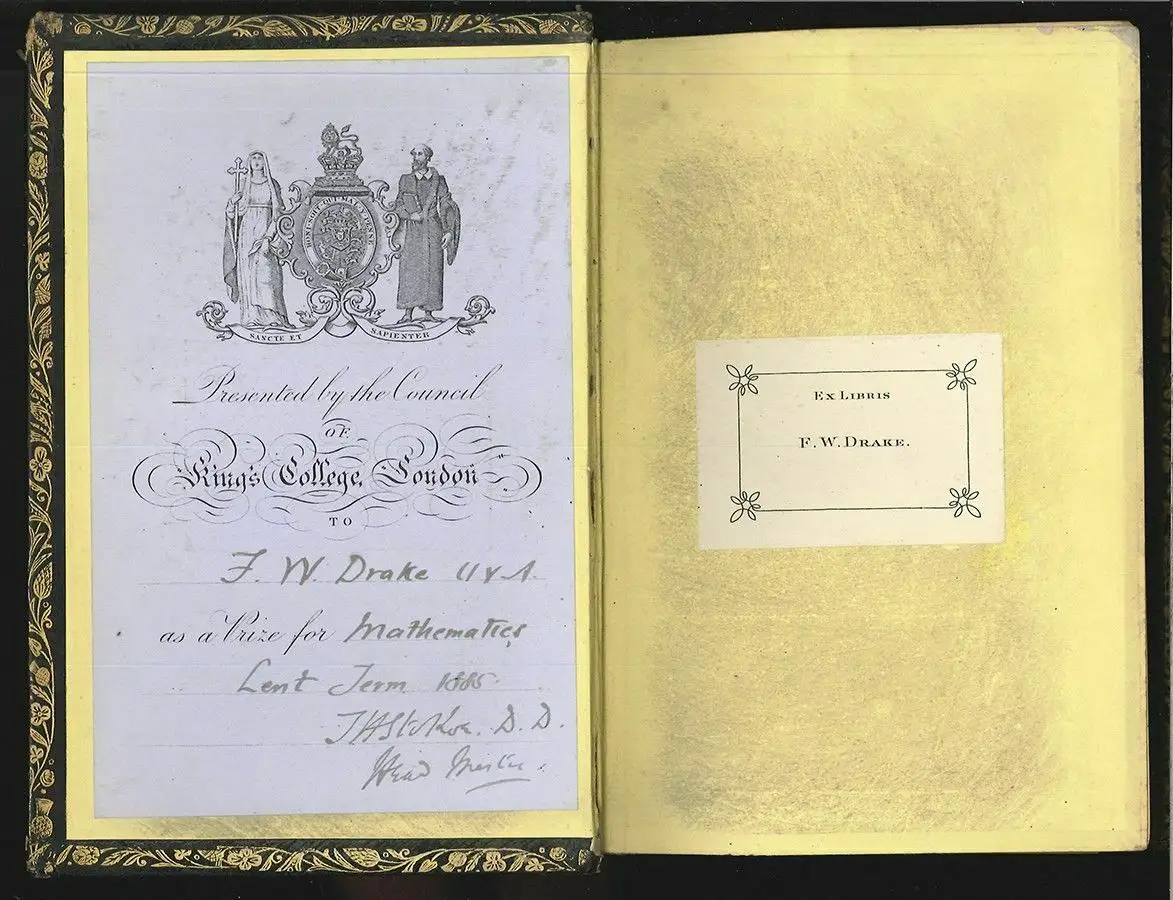 HONI SOIT QUI MAL Y PENSE
SANCTE ET SAPIENTER
Presented by the Council
OF
King's College, London
TO
F. W. Drake
as a Prize for Mathematics
Lent Term 1885
D. D.
Head Master
EX LIBRIS
F. W. DRAKE.